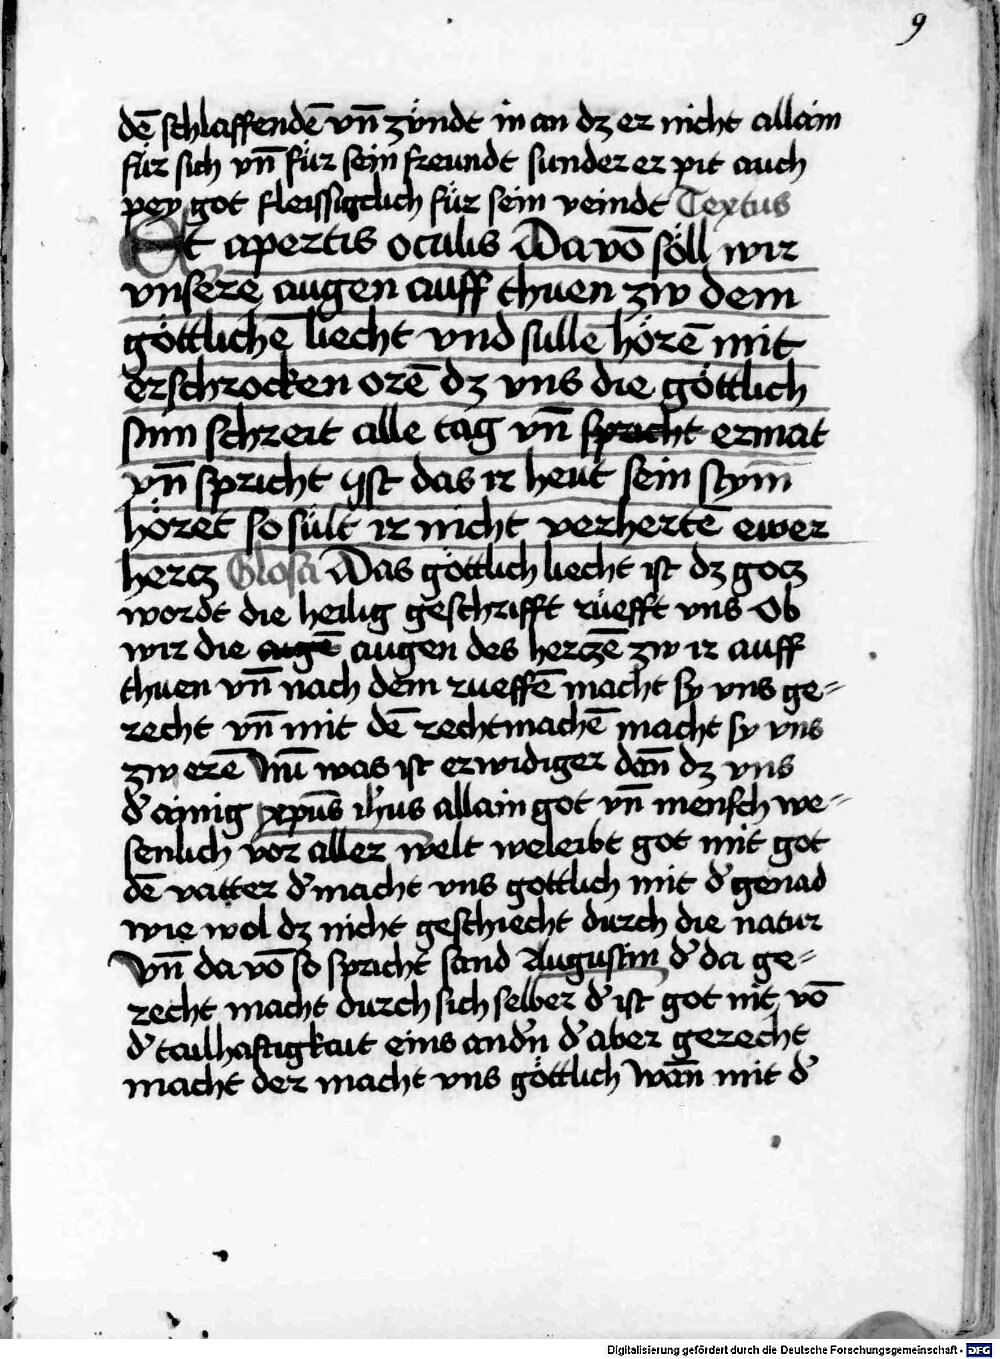 9
dē schlaffendē vn̄ zündt in an dz er nicht allain
für sich vn̄ für sein freundt sunder er pit auch
pey got fleissigclich für sein veindt Textus
Et apertis oculis Da vō söll wir
vnsere augen auff thuen zw dem
göttlichē liecht vnd sullē hörē mit
erschrocken orē dz vns die göttlich
stim schreit alle tag vn̄ spricht ermat
vn̄ spricht yst das ir heut sein stym̄
höret so sült ir nicht verhertē ewer
hercz Glosa Das göttlich liecht ist dz gocz
wordt die heilig geschrifft rüefft vns Ob
wir die augē augen des herczē zw ir auff
thuen vn̄ nach dem rueffē macht sy vns ge=
recht vn̄ mit dē rechtmachē macht sy vns
zw erē Nū was ist erwidiger dan̄ dz vns
d' ainig xpūs ih̄us allain got vn̄ mensch we=
senlich vor aller welt weleibt got mit got
dē vatter d' macht vns gottlich mit d' genad
wie wol dz nicht geschiecht durch die natur
Vn̄ da vō so spricht sand Augustin d' da ge=
recht macht durch sich selber d' ist got nit vō
d' tailhaftigkait eins and'n d' aber gerecht
macht der macht vns göttlich wan̄ mit d'
Digitalisierung gefördert durch die Deutsche Forschungsgemeinschaft - DFG